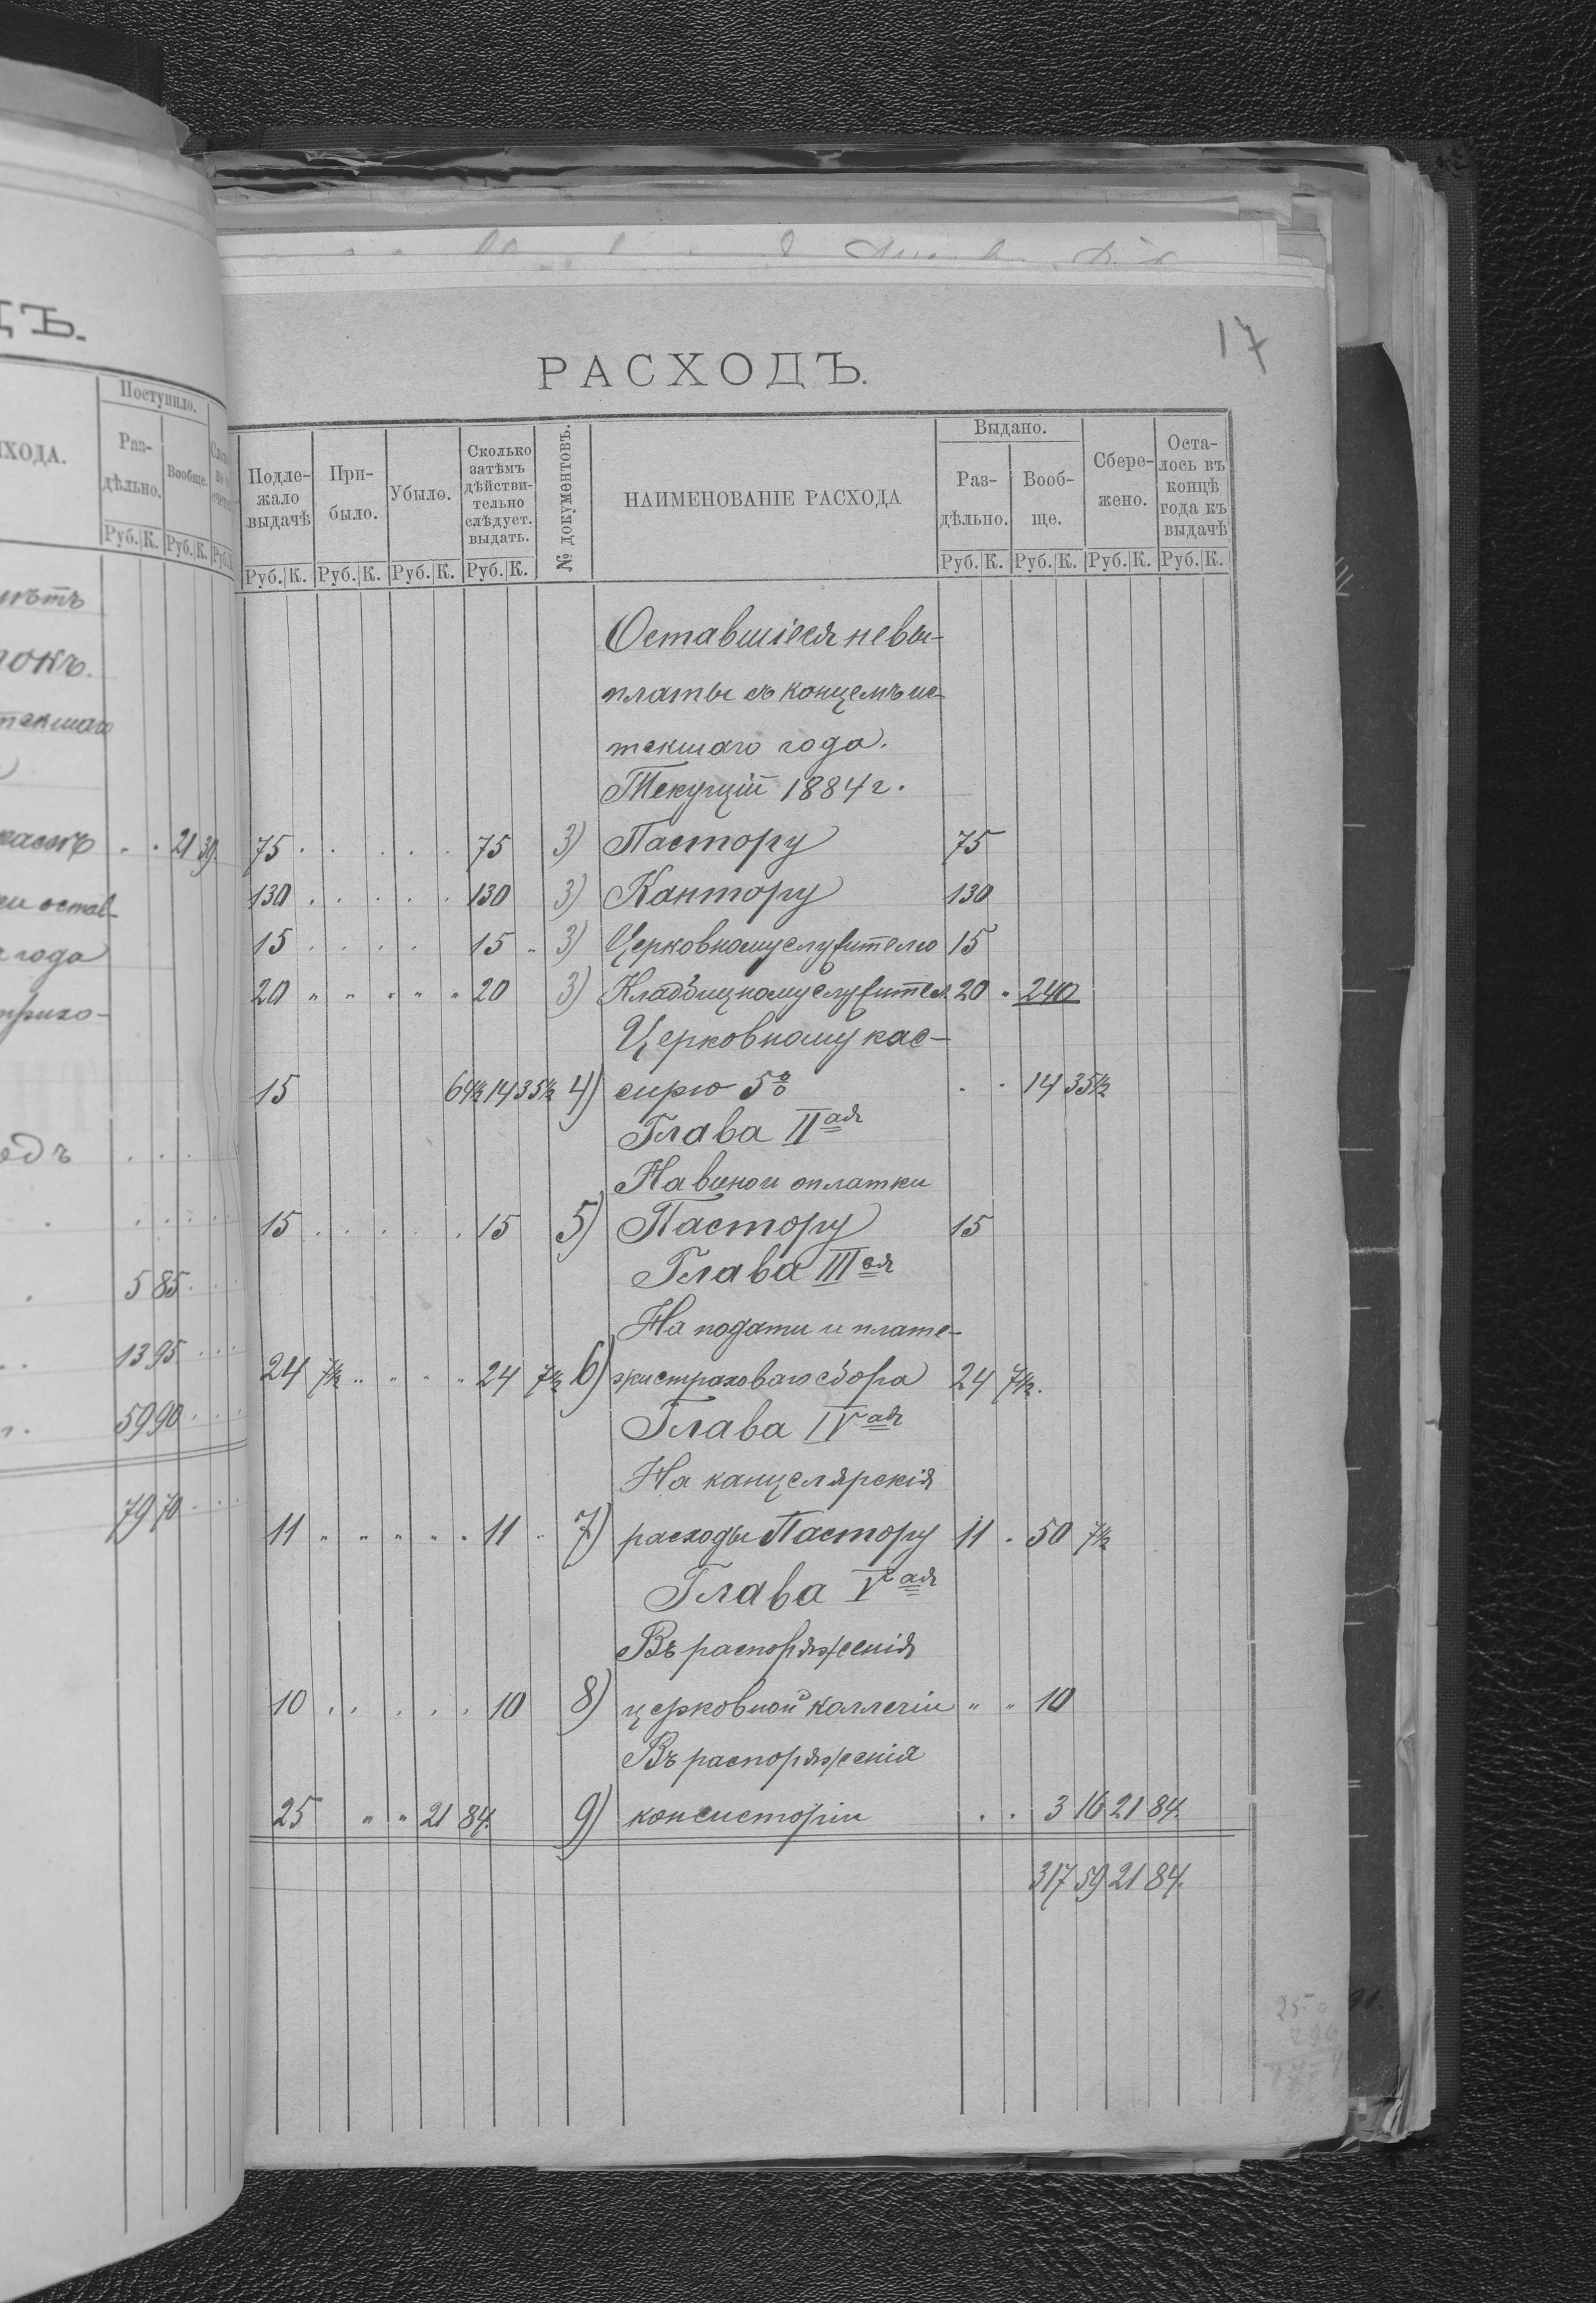 17
РАСХОДЪ.
ДЪ.
ХОДА.
Поступило.
Раз-
дѣльно.
Вообще.
Руб. К. Руб. К. Руб.
Подле-
жало
выдачѣ
При-
было.
Убыло.
Сколько
затѣмъ
дѣйстви-
тельно
слѣдует.
выдать.
№ документовъ.
НАИМЕНОВАНІЕ РАСХОДА
Выдано.
Раз-
дѣльно.
Вооб-
ще.
Сбере-
жено.
Оста-
лось въ
концѣ
года къ
выдачѣ
Руб. К. Руб. К. Руб. К. Руб. К. Руб. К. Руб. К. Руб. К. Руб. К.
Оставшіеся невы-
платы съ концемъ ис-
текшаго года.
Текущій 1884 г.
75 . . . . . 75 3) Пастору 75
130 . . . . . 130 3) Кантору 130
15 . . . . 15 „ 3) Церковному служителю 15
20 „ „ „ „ „ 20 3) Кладбищному служител. 20 „ 240
Церковному кас-
15 64½ 14 35½ 4) сирю 5% . . 14 35½
Глава IIая
На винои оплатки
15 . . . . . 15 5) Пастору 15
Глава IIIья
На подати и плате-
24 7½ „ „ „ „ 24 7½ 6) жи страховаго сбора 24 7½.
Глава IVая
На канцелярскія
11 „ „ „ „ „ 11 „ 7) расходы Пастору 11 . 50 7½
Глава Vая
Въ распоряженія
10 . . . . . 10 8) церковной коллегіи „ „ 10
Въ распоряженія
25 „ „ 21 84. 9) консисторіи . . 3 16 21 84.
317 59 21 84.
текшаго
. . 21 39.
остав-
года
прихо-
5 85.
13 95
59 90
79 70